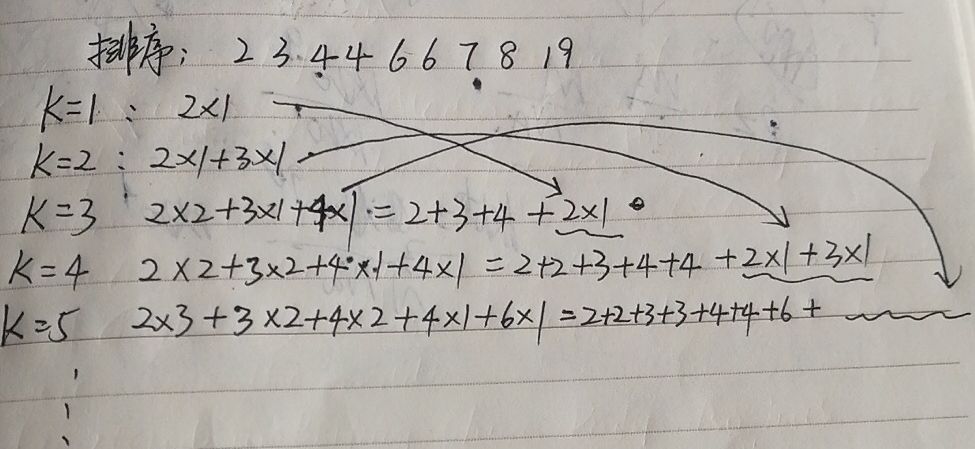 排序: 2 3 4 4 6 6 7 8 19
K=1 : 2×1
K=2 : 2×1+3×1
K=3 2×2+3×1+4×1 = 2+3+4+2×1
K=4 2×2+3×2+4×1+4×1 = 2+2+3+4+4+2×1+3×1
K=5 2×3+3×2+4×2+4×1+6×1 = 2+2+3+3+4+4+6+